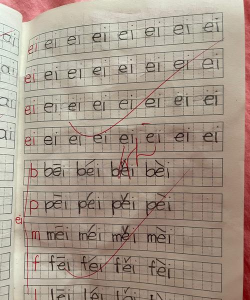 ei ei ei ei ei ei ei ei
ei ei ei ei ei ei ei ei
ei ei ei ei ei ei ei ei
ei ei ei ei ei ēi ei ei
b bēi béi běi bèi
p pēi péi pěi pèi
ei
m mēi méi měi mèi
f fēi féi fěi fèi